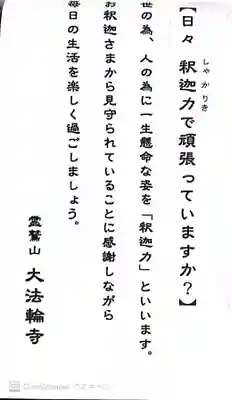 【日々 釈迦力で頑張っていますか？】
しゃかりき
世の為、人の為に一生懸命な姿を「釈迦力」といいます。
お釈迦さまから見守られていることに感謝しながら
毎日の生活を楽しく過ごしましょう。
霊鷲山 大法輪寺
CamScanner